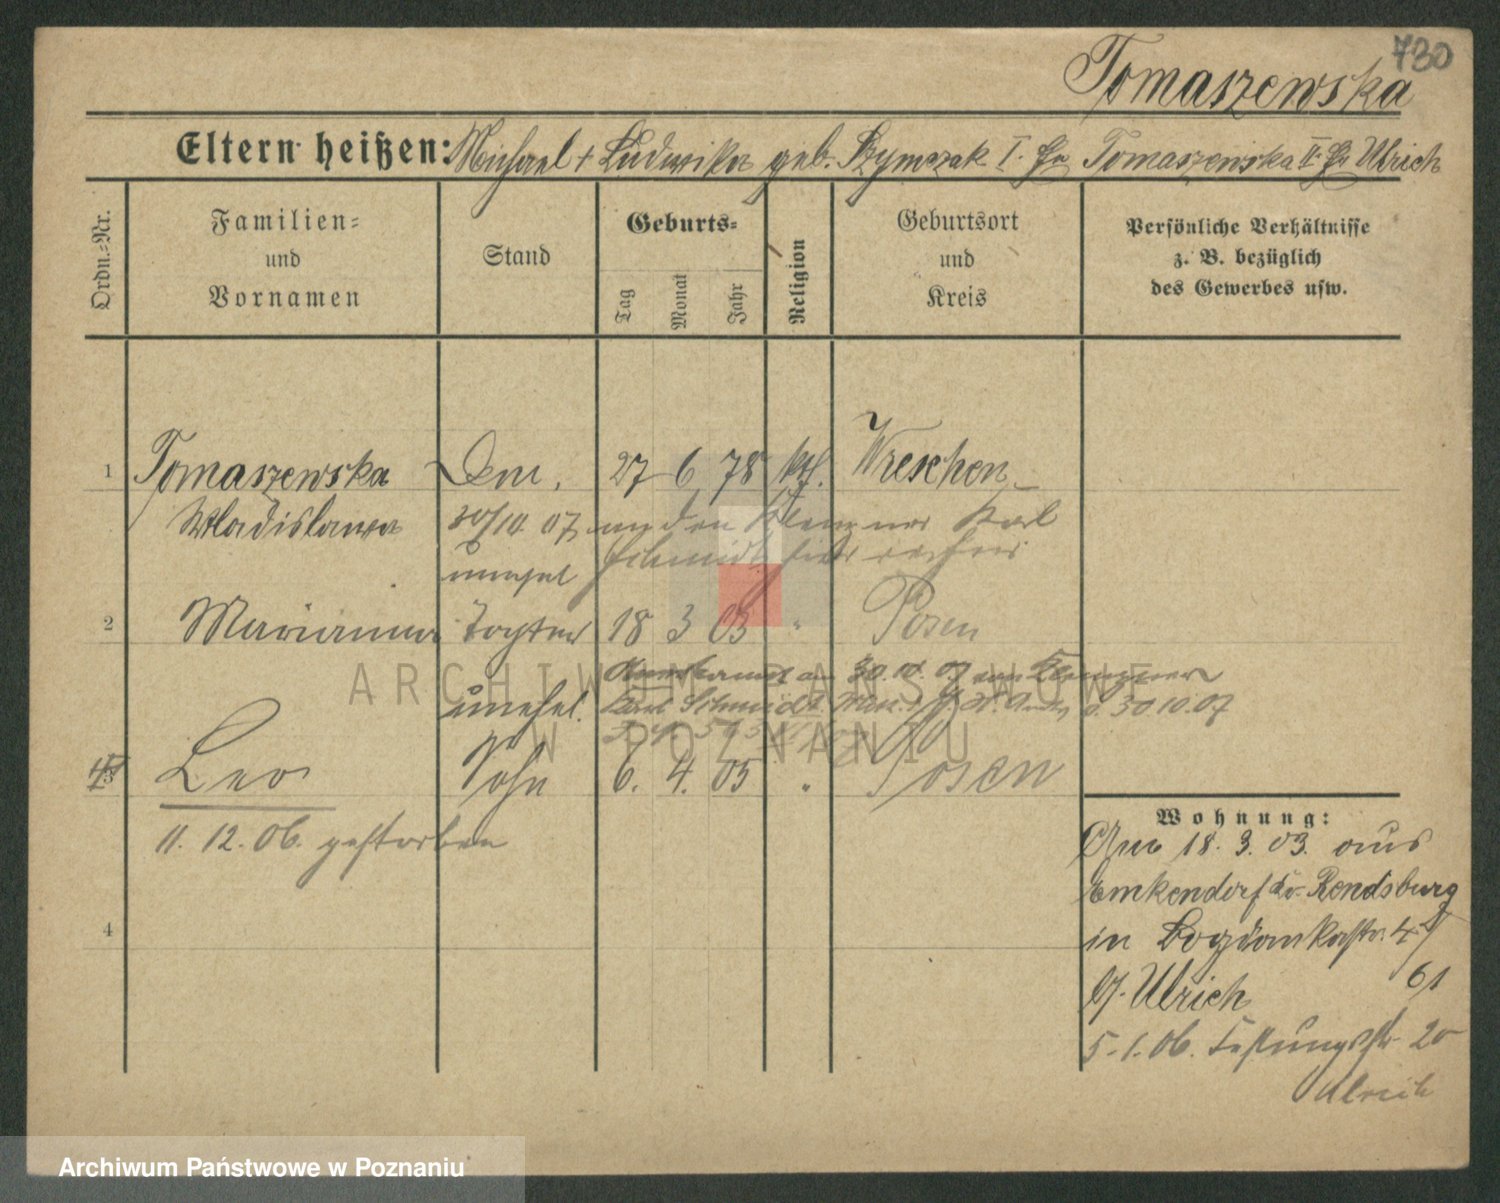 730
Tomaszewska
Eltern heißen: Michael + Ludwika geb. Szymczak I. Tomaszewska II. Ulrich
Ordn.-Nr.
Familien-
und
Vornamen
Stand
Geburts-
Tag
Monat
Jahr
Religion
Geburtsort
und
Kreis
Persönliche Verhältnisse
z. B. bezüglich
des Gewerbes usw.
1 Tomaszewska 27 6 78 kth. Wreschen
Wladislawa 30/10 07 an den Klempner Karl
unehel Schmidt
2 Marianna Tochter 18 3 03 " Posen
30.10.07 Klempner
unehel. Karl Schmidt 30 10.07
3 Leo Sohn 6. 4. 05 " Posen
11. 12. 06. gestorben
4
Wohnung:
18. 3. 03. aus
Emkendorf Kr. Rendsburg
in Bogdankastr. 4
b/. Ulrich 61
5. 1. 06. Festungsstr. 20
Ulrich
ARCHIWUM PAŃSTWOWE
W POZNANIU
Archiwum Państwowe w Poznaniu